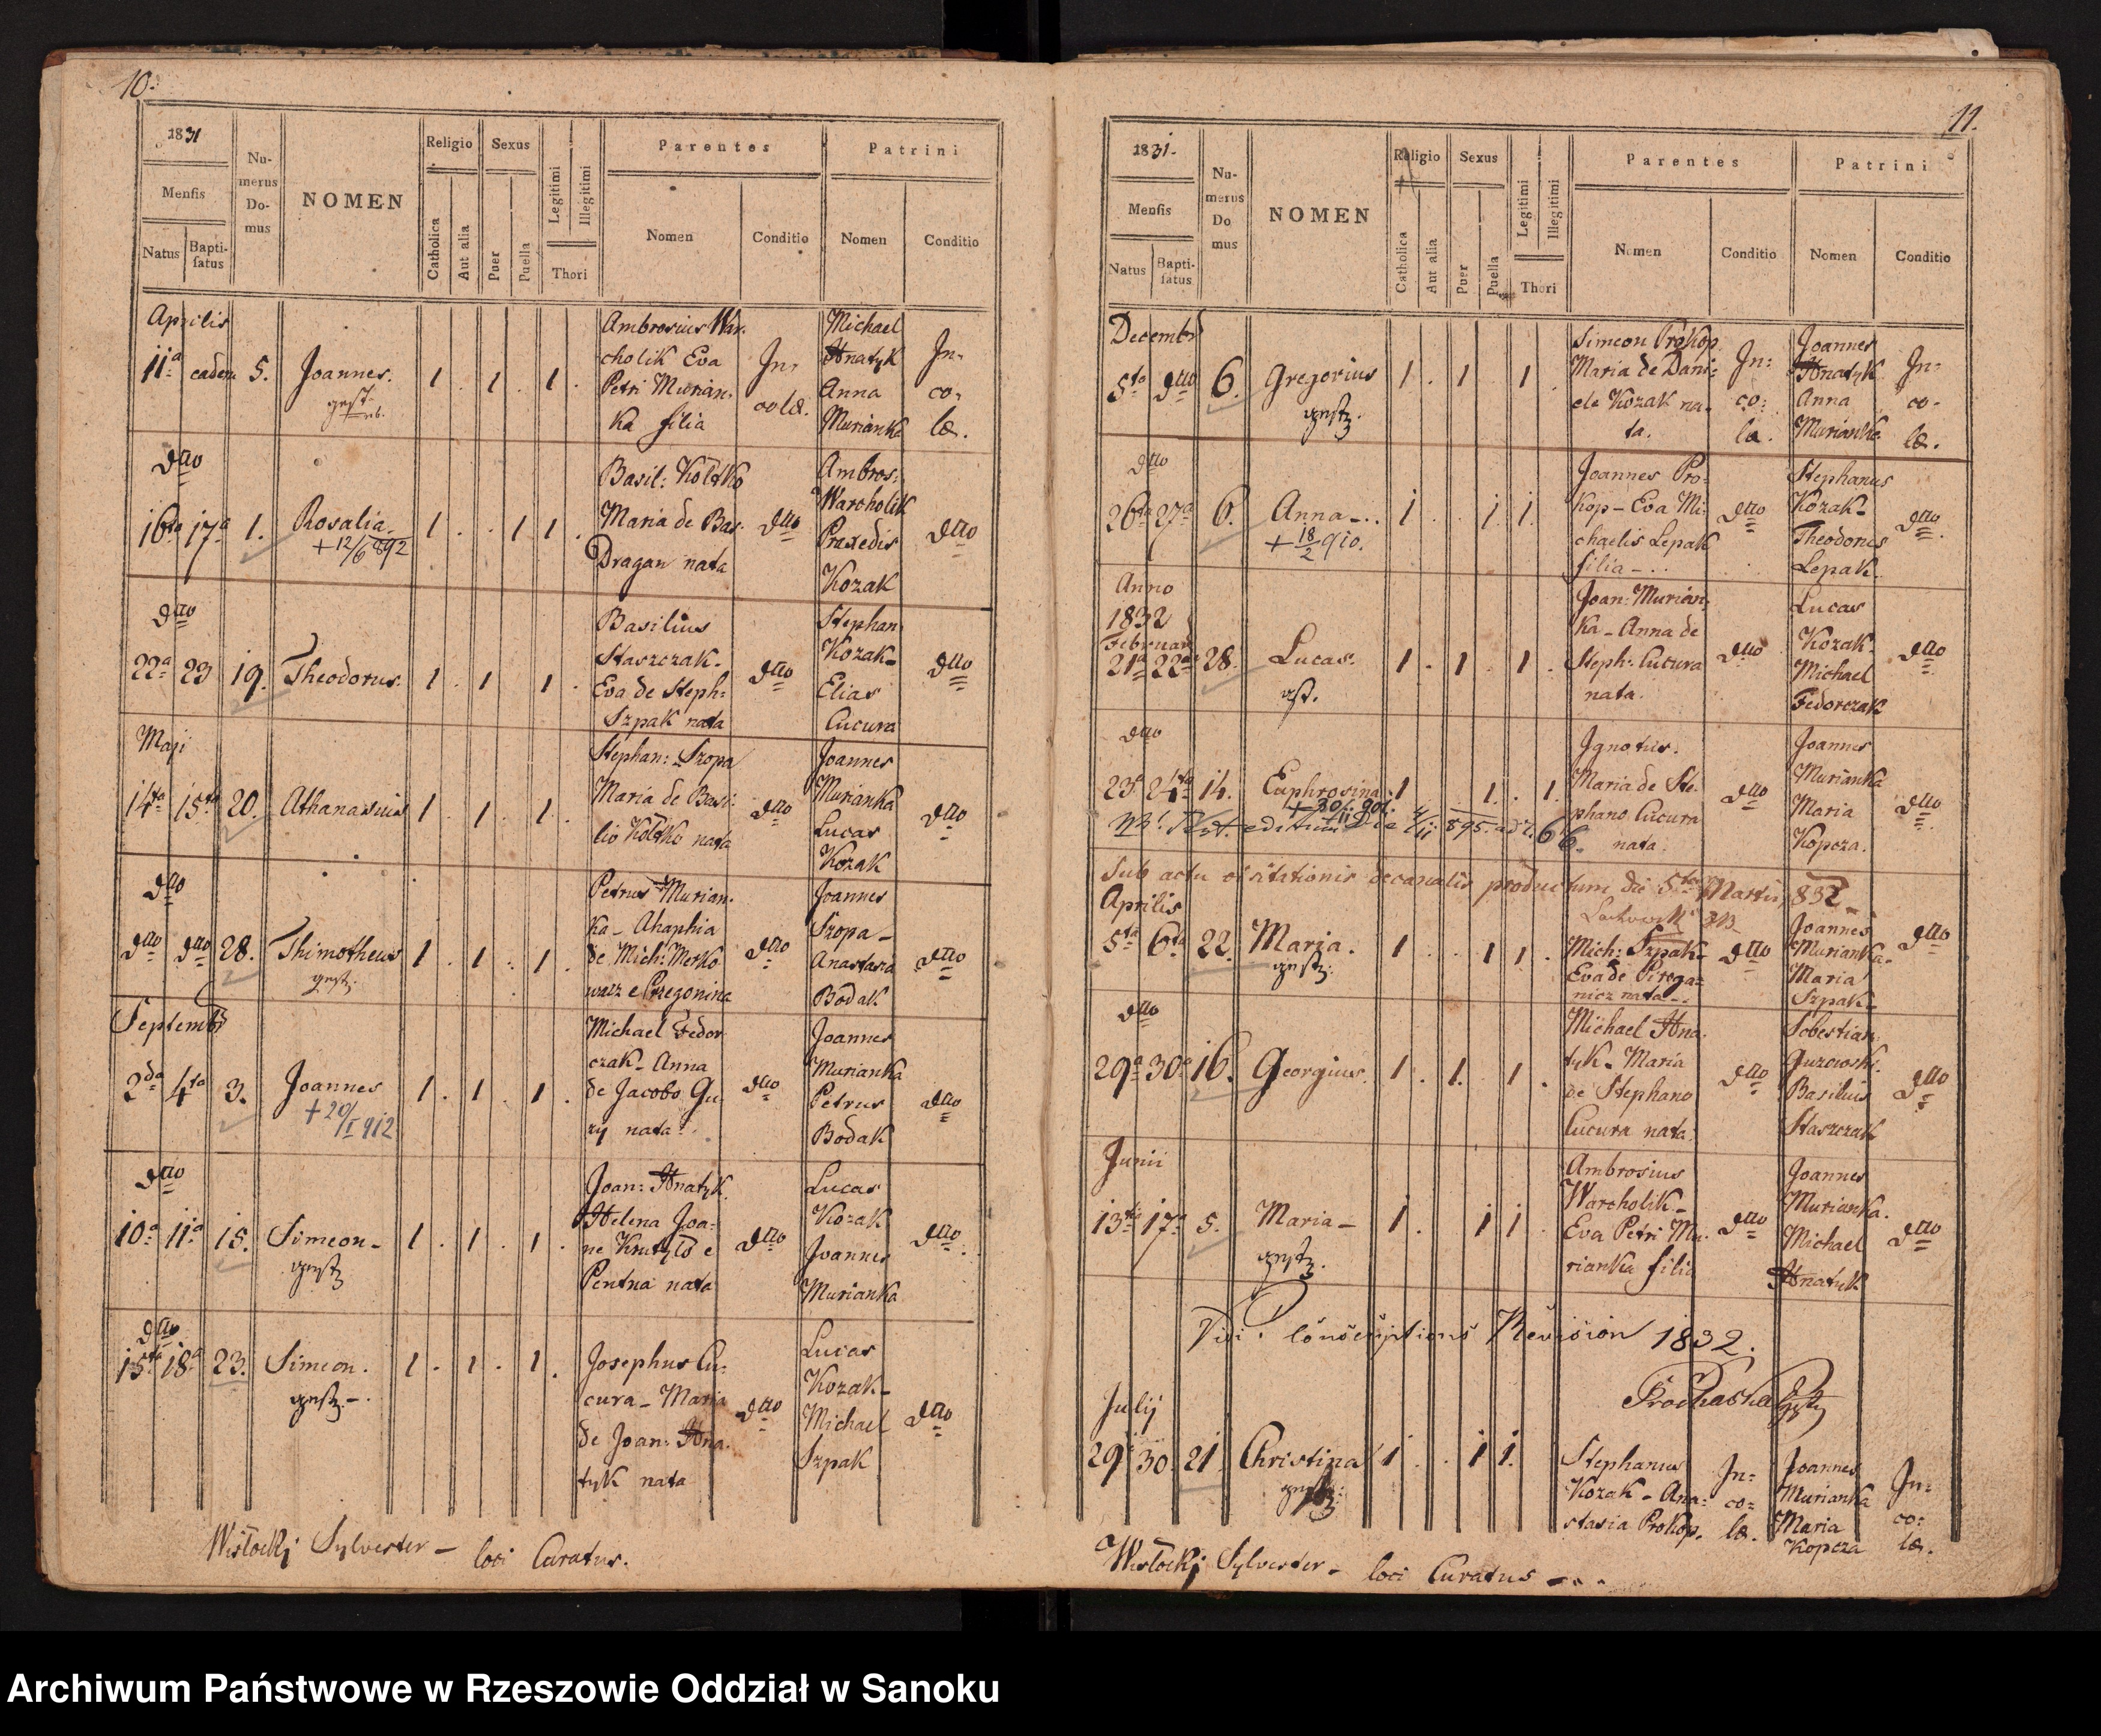 10.
1831
Mensis
Natus
Bapti-
satus
Nu-
merus
Do-
mus
NOMEN
Religio
Catholica
Aut alia
Sexus
Puer
Puella
Legitimi
Illegitimi
Thori
Parentes
Nomen
Conditio
Patrini
Nomen
Conditio
Aprilis
11a eadem 5. Joannes. 1 . 1 . 1 .
Ambrosius War-
cholik Eva
Petri Murian-
ka filia
In-
colæ.
Michael
Hnatyk
Anna
Murianka
In-
co-
læ.
dtto
16ta 17a 1. Rosalia 1 . . 1 1 .
+ 12/6 892
Basil: Koltko
Maria de Bas:
Dragan nata
dtto
Ambros:
Warcholik
Praxedis
Kozak
dtto
dtto
22a 23 19. Theodorus. 1 . 1 1 .
Basilius
Staszczak-
Eva de Steph:
Szpak nata
dtto
Stephan
Kozak-
Elias
Cucura
dtto
Maji
14ta 15ta 20. Athanasius 1 . 1 . 1 .
Stephan: Szopa
Maria de Basi:
lio Koltko nata
dtto
Joannes
Murianka
Lucas
Kozak
dtto
dtto
dtto dtto 28. Thimotheus 1 . 1 . 1 .
Petrus Murian-
ka - Ahaphia
de Mich: Merko
wacz e Przegonina
dtto
Joannes
Szopa -
Anastasia
Bodak
dtto
Septembr
2da 4ta 3. Joannes 1 . 1 . 1 .
+ 20/I 912
Michael Fedor
czak - Anna
de Jacobo Gu
zy nata.
dtto
Joannes
Murianka
Petrus
Bodak
dtto
dtto
10a 11a 15. Simeon - 1 . 1 . 1 .
Joan: Hnatyk
Helena Joa-
ne
Pentna nata
dtto
Lucas
Kozak
Joannes
Murianka
dtto
dtto
15ta 18a 23. Simeon. 1 . 1 . 1 .
Josephus Cu-
cura - Maria
de Joan: Hna-
tyk nata
dtto
Lucas
Kozak -
Michael
Szpak
dtto
Wisłockj Sylvester - loci Curatus.
11.
1831.
Mensis
Natus
Bapti-
satus
Nu-
merus
Do
mus
NOMEN
Religio
Catholica
Aut alia
Sexus
Puer
Puella
Legitimi
Illegitimi
Thori
Parentes
Nomen
Conditio
Patrini
Nomen
Conditio
Decembr
5ta dtto 6. Gregorius 1 . 1 . 1 .
Simeon Prokop
Maria de Dani-
ele Kozak na-
ta.
In:
co:
læ.
Joannes
Hnatyk
Anna
Murianka
In-
co-
læ.
dtto
26ta 27a 6. Anna - . . 1 . . 1 1.
+ 18/2 910.
Joannes Pro-
kop - Eva Mi-
chaelis Lepak
filia - . .
dtto
Stephanus
Kozak -
Theodorus
Lepak.
dtto
Anno
1832
Februar
21a 22a 28. Lucas. 1 . 1 . 1 .
Joan: Murian-
ka - Anna de
Steph: Cucura
nata.
dtto
Lucas
Kozak-
Michael
Fedorczak
dtto
dtto
23 24ta 14. Euphrosina 1 . . 1. . 1.
Ignotus.
Maria de Ste-
phano Cucura
nata.
dtto
Joannes
Murianka
Maria
Kopcza.
dtto
Sub actu visitationis decanalis productum die 5ta Martii 832 -
Aprilis
5ta 6ta 22. Maria. 1 . . 1 1 .
Mich: Szpak -
Eva de Piroga-
nicz nata - .
dtto
Joannes
Murianka -
Maria
Szpak -
dtto
dtto
29a 30a 16. Georgius. 1 . 1. 1 .
Michael Hna-
tyk - Maria
de Stephano
Cucura nata:
dtto
Sebestian
Basilius
Staszczak
dtto
Junii
13ta 17a 5. Maria - 1 . . 1 1 .
Ambrosius
Warcholik -
Eva Petri Mu-
rianka filia
dtto
Joannes
Murianka.
Michael
Hnatyk
dtto
Vidi Conscriptions Revision 1832.
Prochaska
Julij
29 30 21 Christina 1 . . 1 1.
Stephanus
Kozak - Ana-
stasia Prokop.
In-
co-
læ.
Joannes
Murianka
Maria
Kopcza
In-
co-
læ.
Wisłockj Sylvester - loci Curatus - . .
Archiwum Państwowe w Rzeszowie Oddział w Sanoku